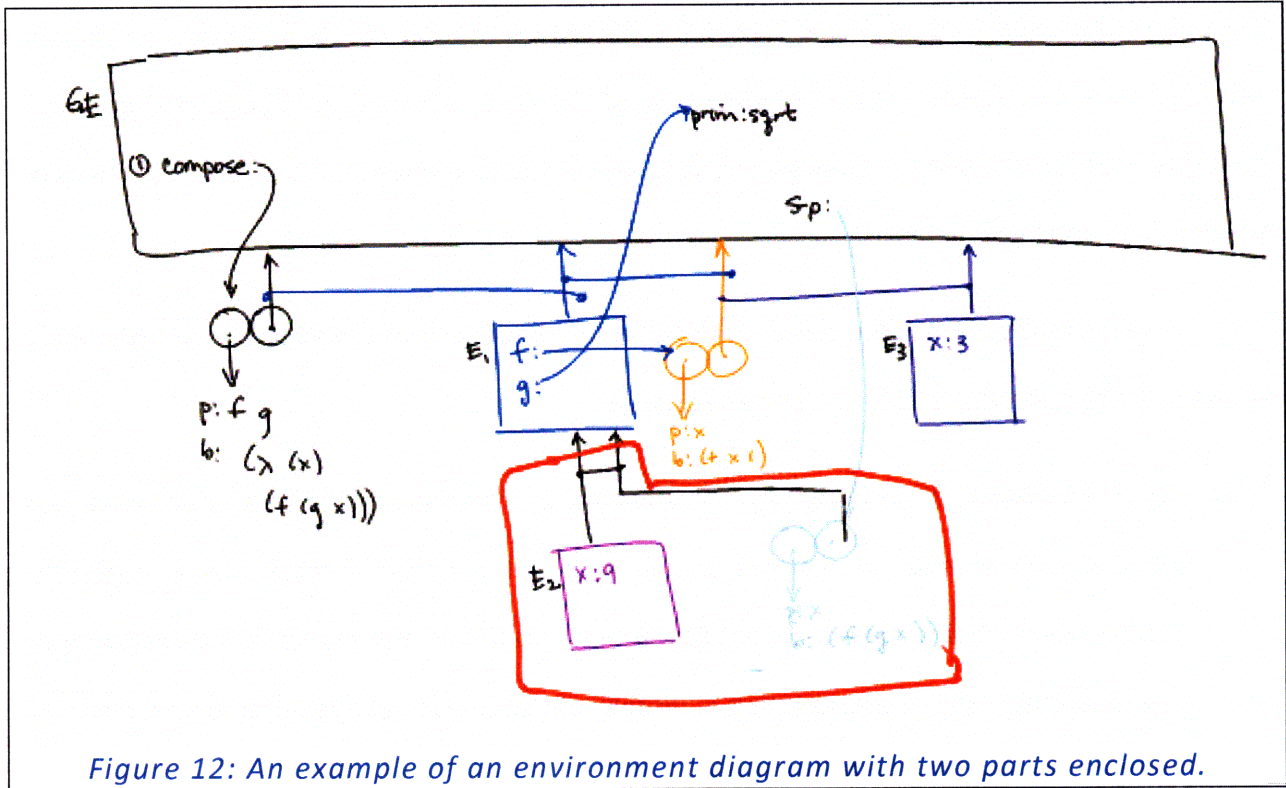 GE
prim:sqrt
① compose:
sp:
E₁
f:
g:
E₃ x:3
p: f g
b: (λ (x)
(f (g x)))
p: x
b: (+ x 1)
E₂ x:9
p: x
b: (f (g x))
Figure 12: An example of an environment diagram with two parts enclosed.